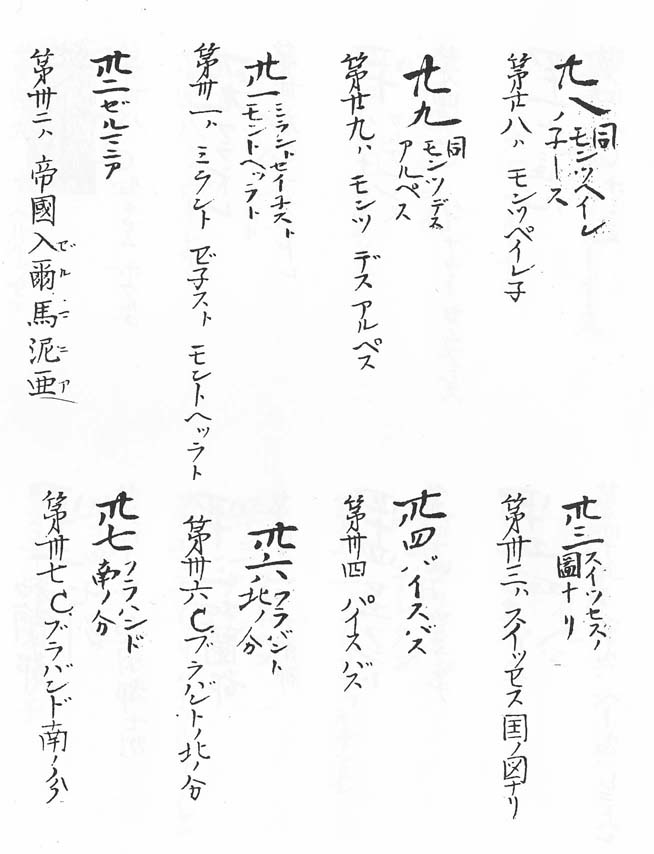 廿八同モンツペイレ
ノ子ース
第廿八ハ モンツペイレ子
廿九同モンツデス
アルペス
第廿九ハ モンツ デス アルペス
卅一ミラントゼイ子スト
モントヘッラト
第卅一ハ ミラント ゼ子スト モントヘッラト
卅二ゼルマニア
第卅二ハ 帝國入爾馬泥亜
ゼルマニア
卅三スイツセスノ
圖ナリ
第卅三ハ スイッセス国ノ図ナリ
卅四バイスバス
第卅四 パイスバス
卅六ブラバント
ノ北ノ分
第卅六Cブラバントノ北ノ分
卅七フラハンド
南ノ分
第卅七Cブラバンド南ノ分